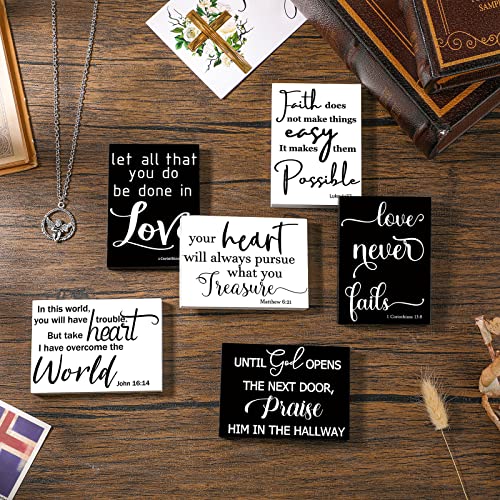 Faith does
not make things
easy
It makes them
Possible
let all that
you do
be done in
Love
1 Corinthians
your heart
will always pursue
what you
Treasure
Matthew 6:21
love
never
fails
1 Corinthians 13:8
In this world,
you will have trouble
But take heart
I have overcome the
World
John 16:14
UNTIL God OPENS
THE NEXT DOOR,
Praise
HIM IN THE HALLWAY